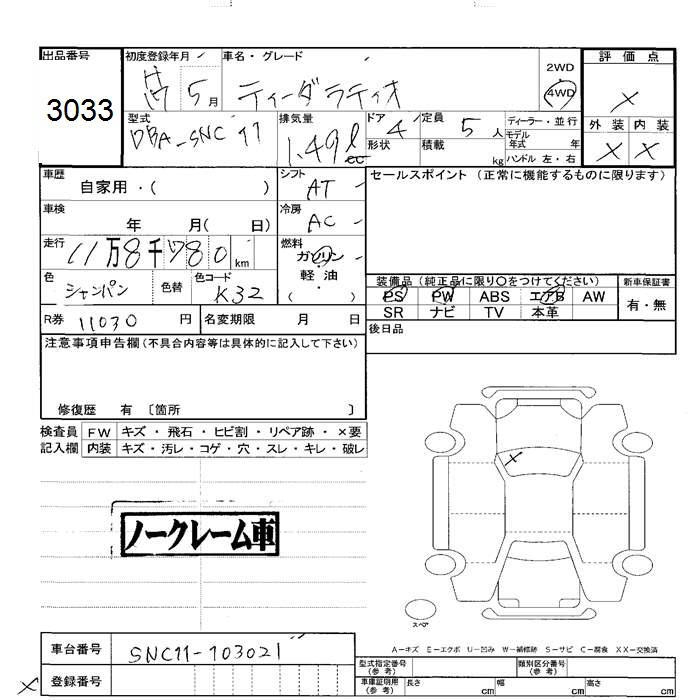 出品番号 初度登録年月 車名・グレード 評価点
3033 5月 ティーダラティオ 2WD 4WD ×
型式 排気量 ドア 定員 ディーラー・並行 外装 内装
DBA-SNC11 1.49ℓ cc 4 5人 モデル年式 年 × ×
形状 積載 kg ハンドル 左・右
車歴 自家用・( ) シフト AT セールスポイント (正常に機能するものに限ります)
車検 年 月( 日) 冷房 AC
走行 11万8千780km 燃料 ガソリン
軽油
( )
色 シャンパン 色替 色コード K32 装備品(純正品に限り○をつけてください) 新車保証書
PS PW ABS エアB AW 有・無
SR ナビ TV 本革
R券 11030円 名変期限 月 日 後日品
注意事項申告欄(不具合内容等は具体的に記入して下さい)
修復歴 有 〔箇所 〕
検査員 FW キズ・飛石・ヒビ割・リペア跡・×要
記入欄 内装 キズ・汚レ・コゲ・穴・スレ・キレ・破レ
×
ノークレーム車
スペア
A―キズ E―エクボ U―凹み W―補修跡 S―サビ C―腐食 XX―交換済
車台番号 SNC11-103021
型式指定番号(参考) 類別区分番号(参考)
× 登録番号
車庫証明用(参考) 長さ cm 幅 cm 高さ cm